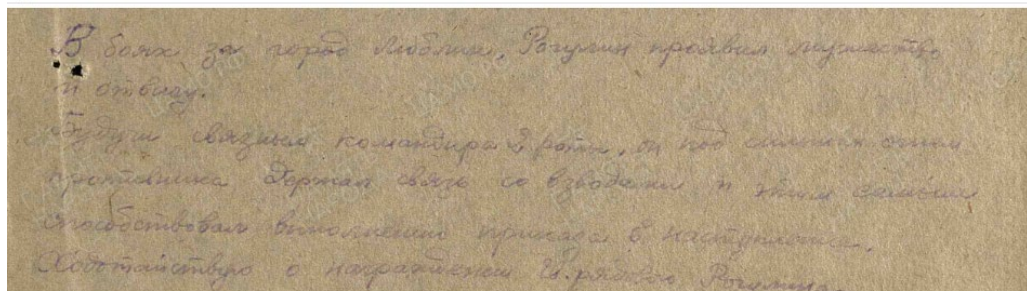 В боях за город Люблин, Рогулин проявил мужество
и отвагу.
Будучи связным командира 2 роты, он под сильным огнем
противника держал связь со взводами и этим самым
способствовал выполнению приказа в наступлении.
Ходотайствую о награждении гв. рядового Рогулина.